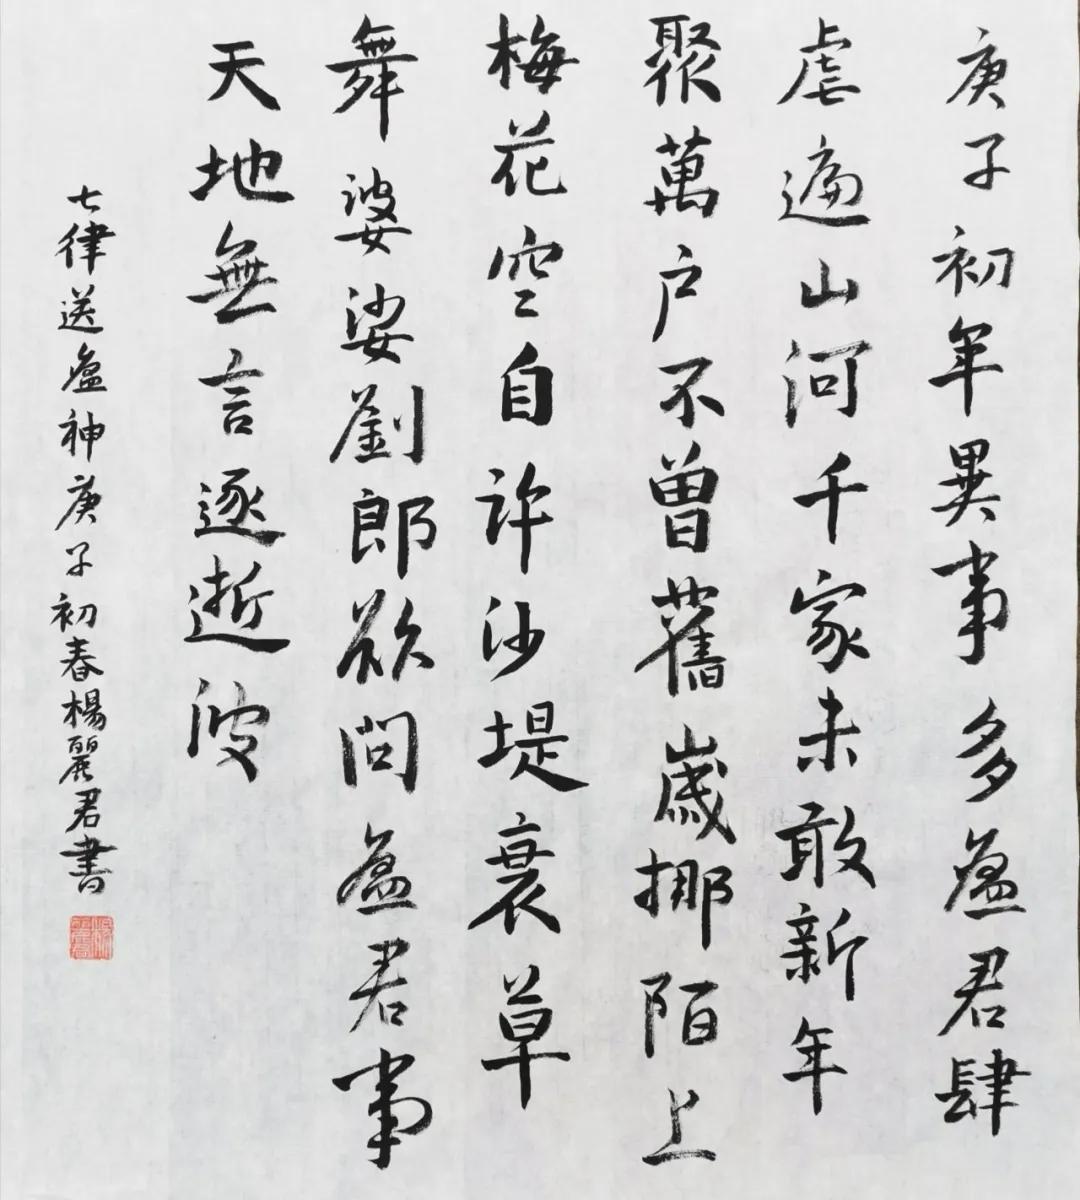 庚子初年異事多盈君肆
虐遍山河千家未敢新年
聚萬戶不曾舊歲挪陌上
梅花空自許沙堤衰草
舞婆娑劉郎欲問盈君事
天地無言逐逝波
七律送盈神庚子初春楊麗君書